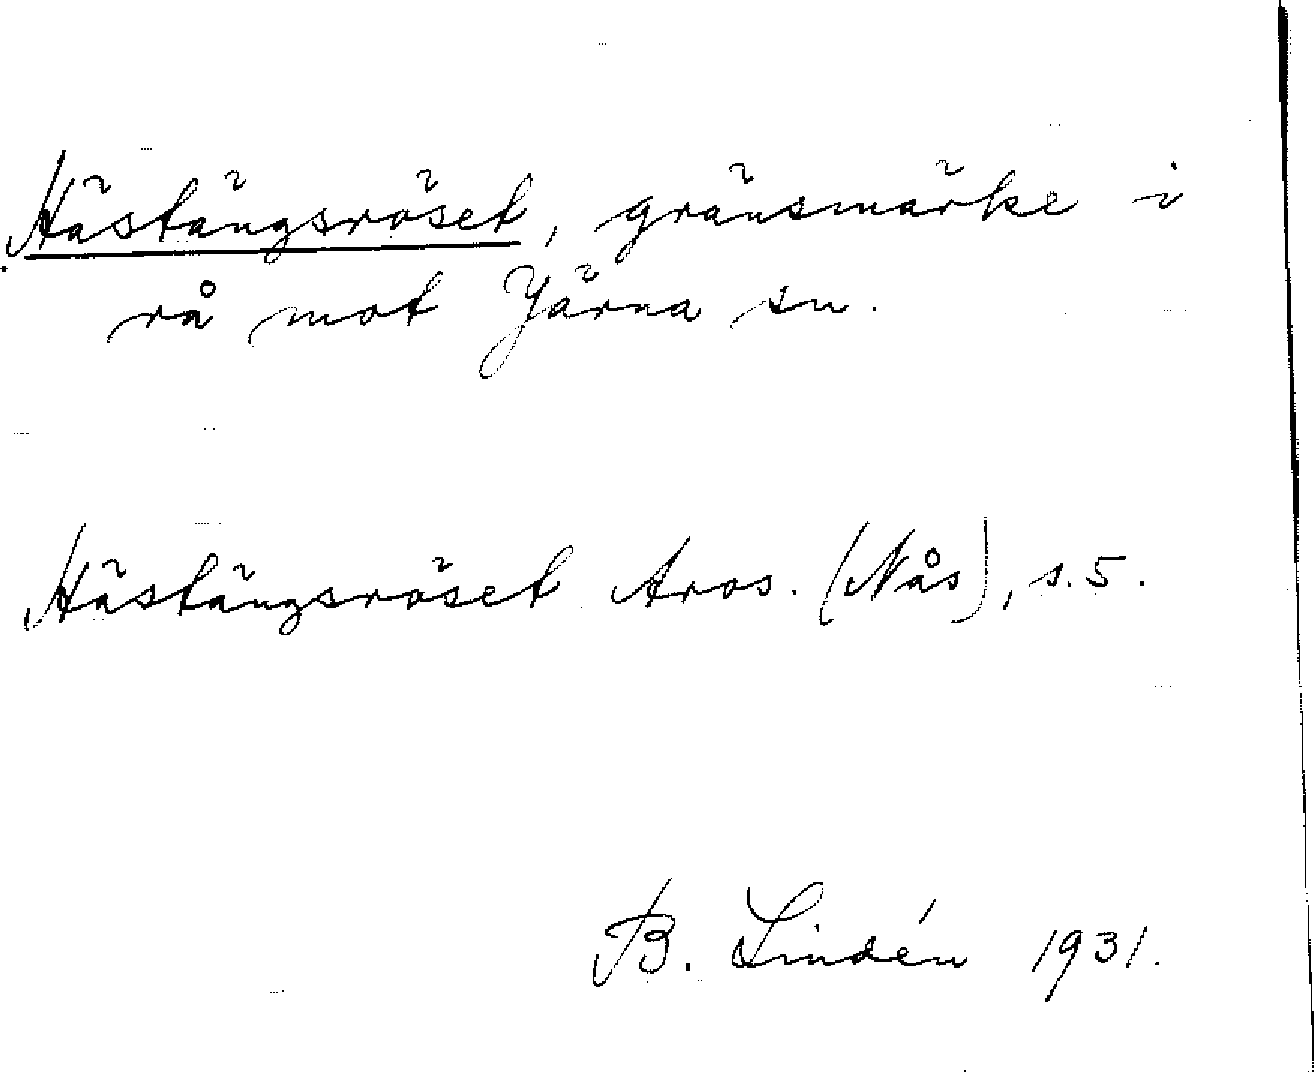 Hästängsröset, gränsmärke i
rå mot Järna sn.
Hästängsröset Aros. (Nås), s. 5.
B. Lindén 1931.